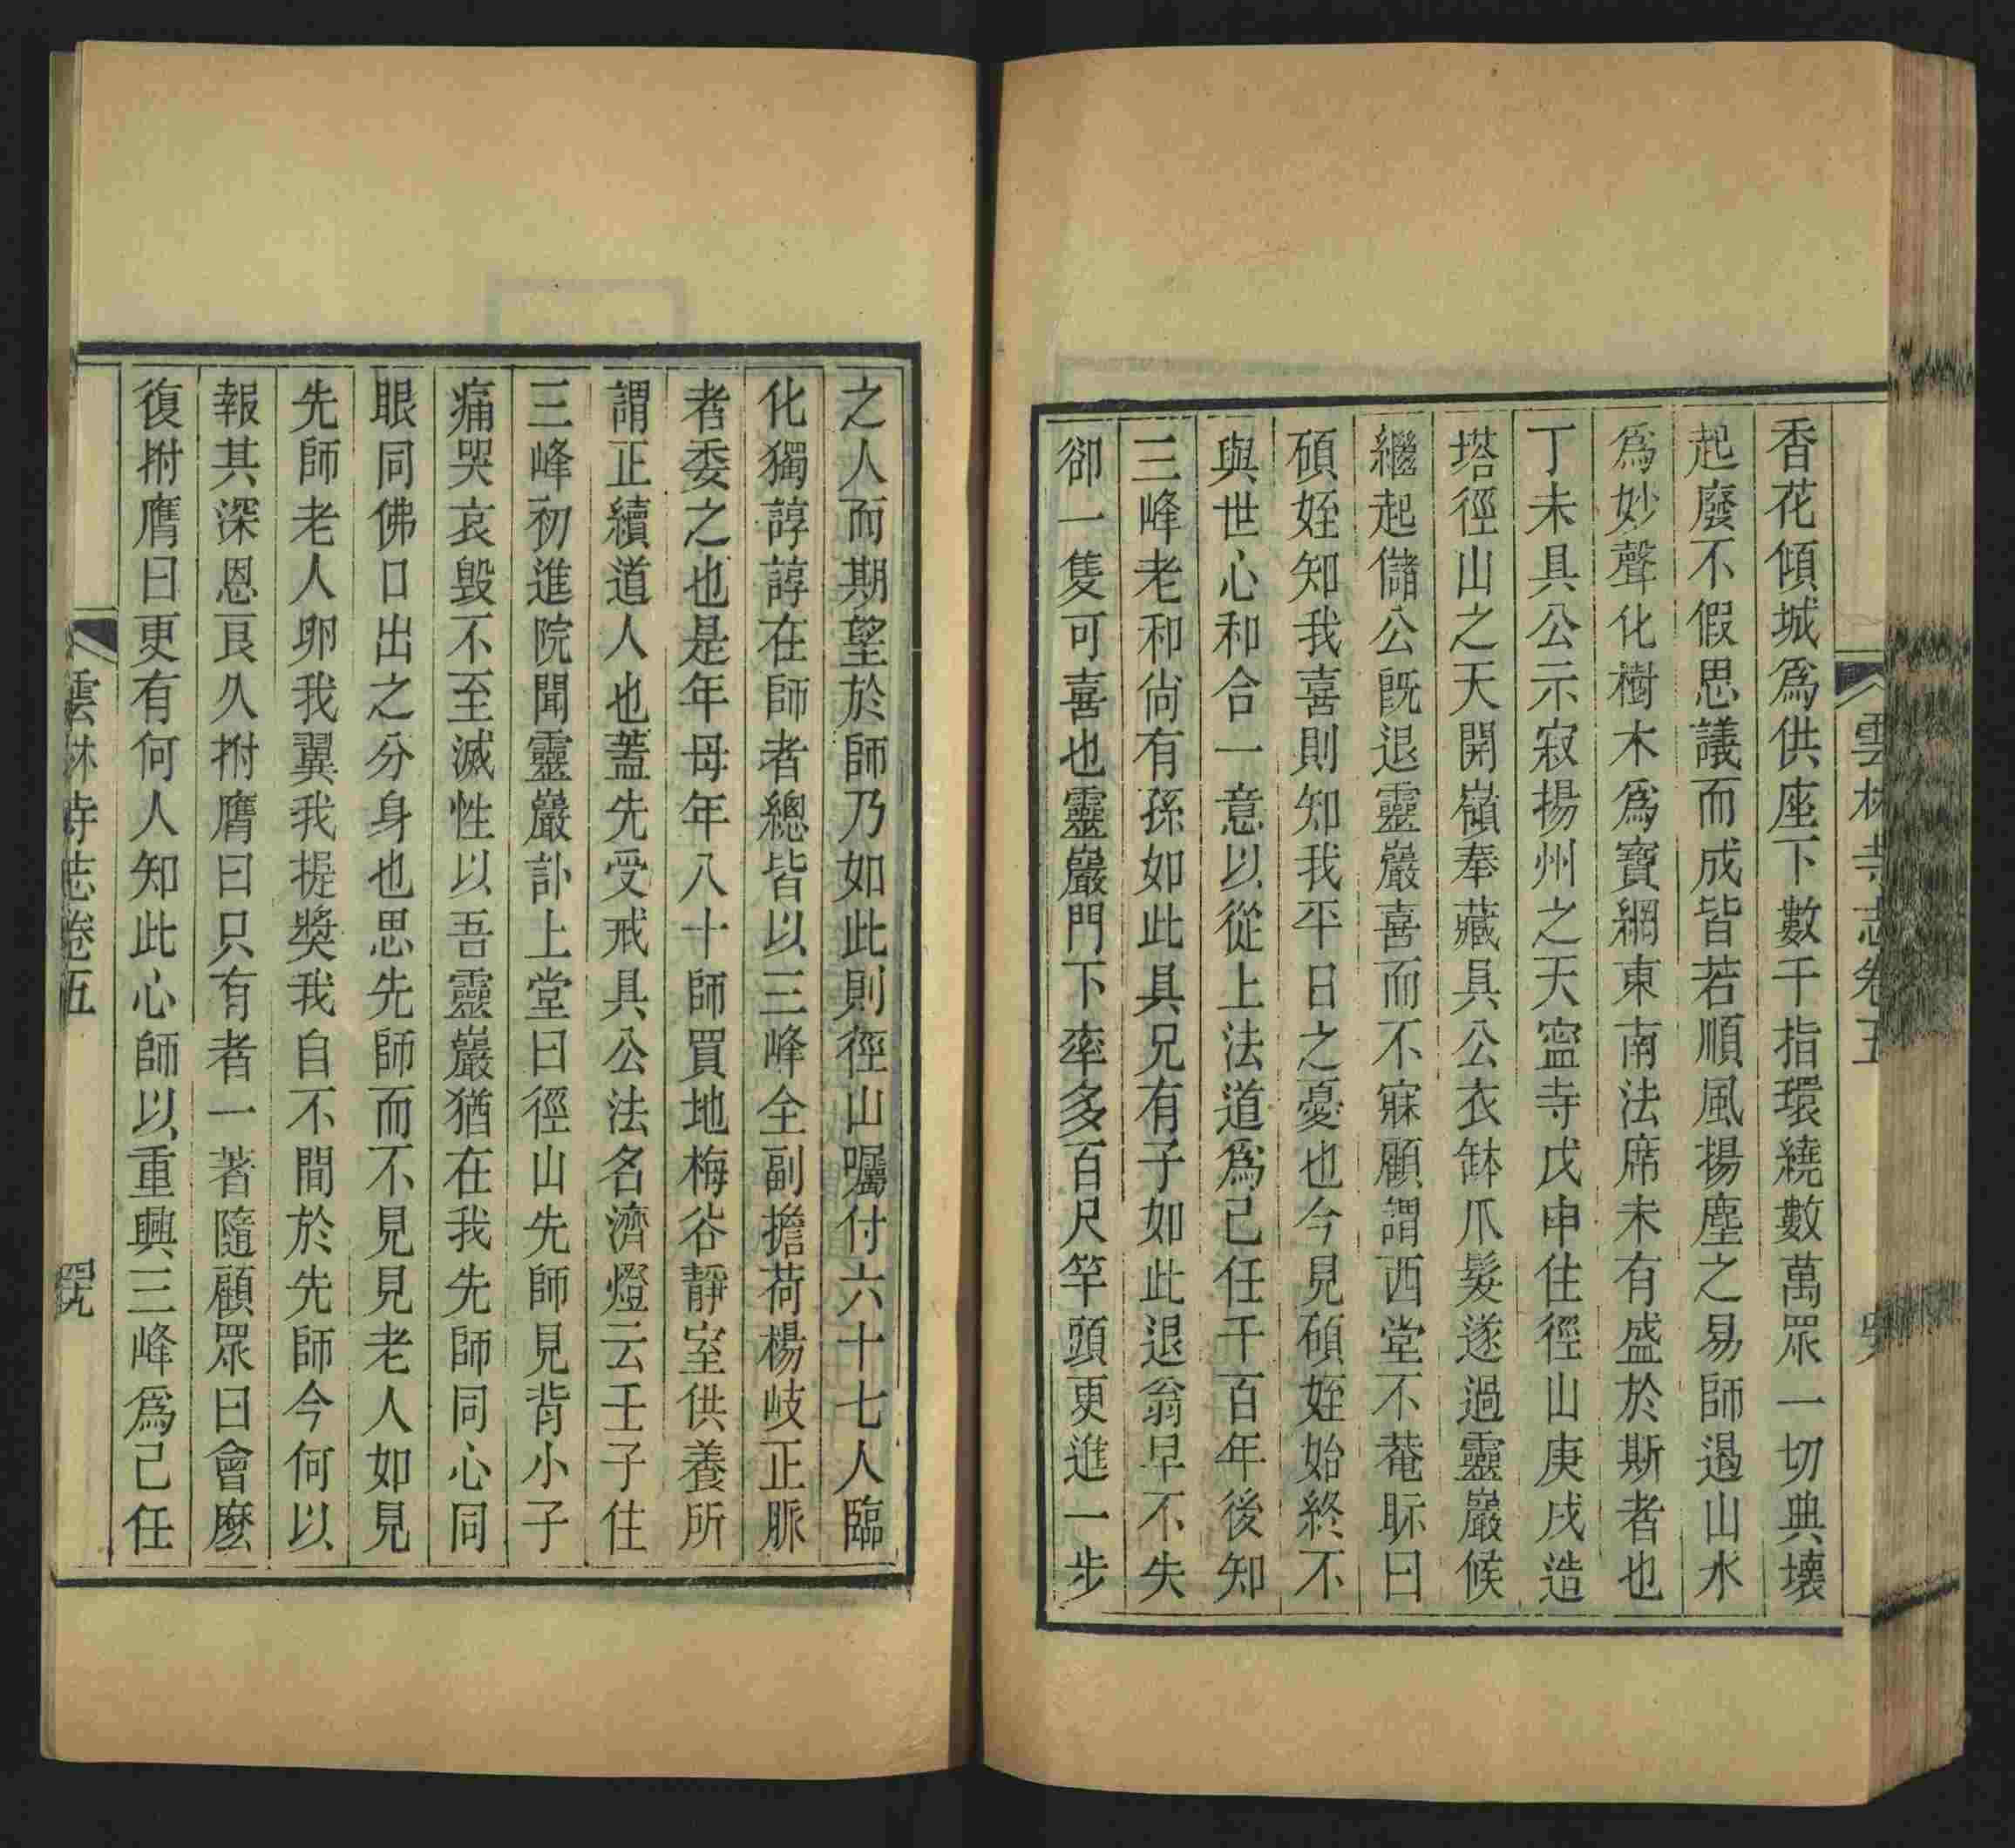 香花傾城爲供座下數千指環繞數萬眾一切典壞
起廢不假思議而成皆若順風揚塵之易師過山水
爲妙聲化樹木爲寶網東南法席未有盛於斯者也
丁未具公示寂揚州之天寍寺戊申住徑山庚戌造
塔徑山之天開嶺奉藏具公衣鉢爪髮遂過靈巖候
繼起儲公旣退靈巖喜而不寐顧謂西堂不菴眎曰
碩姪知我喜則知我平日之憂也今見碩姪始終不
與世心和合一意以從上法道爲己任千百年後知
三峰老和尙有孫如此具兄有子如此退翁早不失
卻一隻可喜也靈巖門下率多百尺竿頭更進一步
雲林寺志卷五
之人而期望於師乃如此則徑山囑付六十七人臨
化獨諄諄在師者總皆以三峰全副擔荷楊岐正脈
者委之也是年母年八十師買地梅谷靜室供養所
謂正續道人也蓋先受戒具公法名濟燈云壬子住
三峰初進院聞靈巖訃上堂曰徑山先師見背小子
痛哭哀毀不至滅性以吾靈巖猶在我先師同心同
眼同佛口出之分身也思先師而不見見老人如見
先師老人卵我翼我提獎我自不間於先師今何以
報其深恩良久拊膺曰只有者一著隨顧眾曰會麼
復拊膺曰更有何人知此心師以重興三峰爲己任
雲林寺志卷五